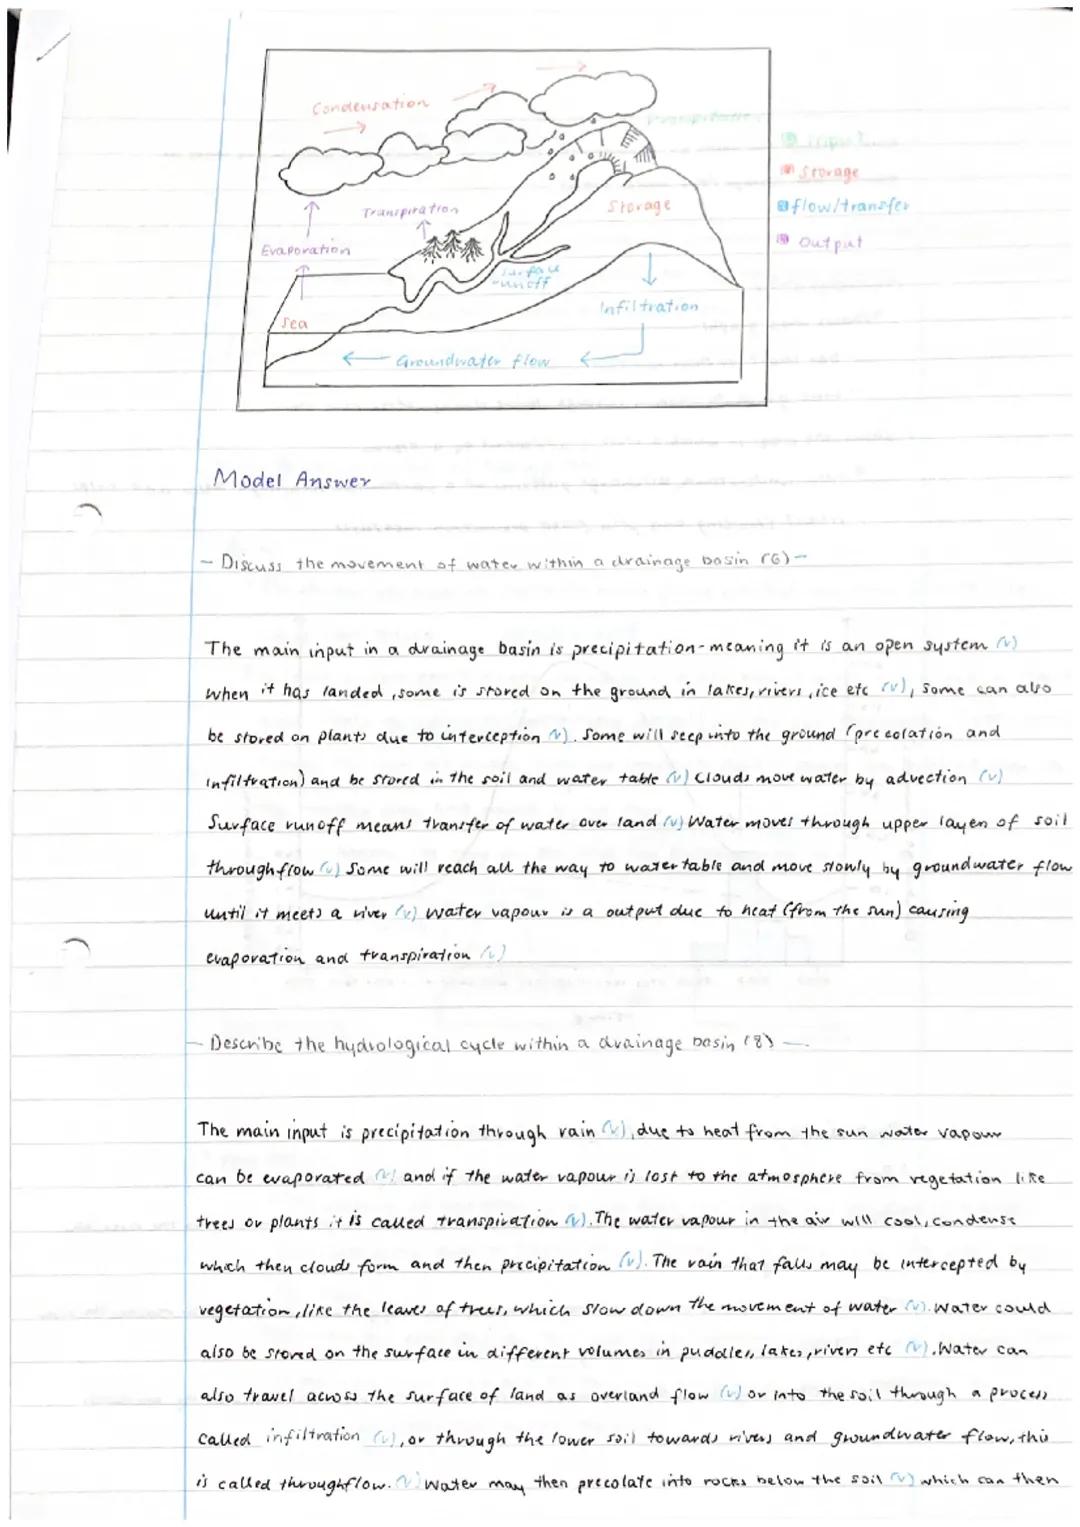 Condensation
Precipitation
Input
Storage
Storage
flow/transfer
Transpiration
Output
Evaporation
Surface
runoff
Infiltration
Sea
Groundwater flow
Model Answer
- Discuss the movement of water within a drainage basin (6) -
The main input in a drainage basin is precipitation - meaning it is an open system (✓)
when it has landed, some is stored on the ground in lakes, rivers, ice etc (✓), some can also
be stored on plants due to interception (✓). Some will seep into the ground (precolation and
infiltration) and be stored in the soil and water table (✓) Clouds move water by advection (✓)
Surface runoff means transfer of water over land (✓) Water moves through upper layer of soil
throughflow (✓) Some will reach all the way to watertable and move slowly by groundwater flow
until it meets a river (✓) water vapour is a output due to heat (from the sun) causing
evaporation and transpiration (✓)
- Describe the hydrological cycle within a drainage basin (8) -
The main input is precipitation through rain (✓), due to heat from the sun water vapour
can be evaporated (✓) and if the water vapour is lost to the atmosphere from vegetation like
trees or plants it is called transpiration (✓). The water vapour in the air will cool, condense
which then clouds form and then precipitation (✓). The rain that falls may be intercepted by
vegetation, like the leaves of trees, which slow down the movement of water (✓). Water could
also be stored on the surface in different volumes in puddles, lakes, rivers etc (✓). Water can
also travel across the surface of land as overland flow (✓) or into the soil through a process
called infiltration (✓), or through the lower soil towards rivers and groundwater flow, this
is called throughflow. (✓) Water may then precolate into rocks below the soil (✓) which can then